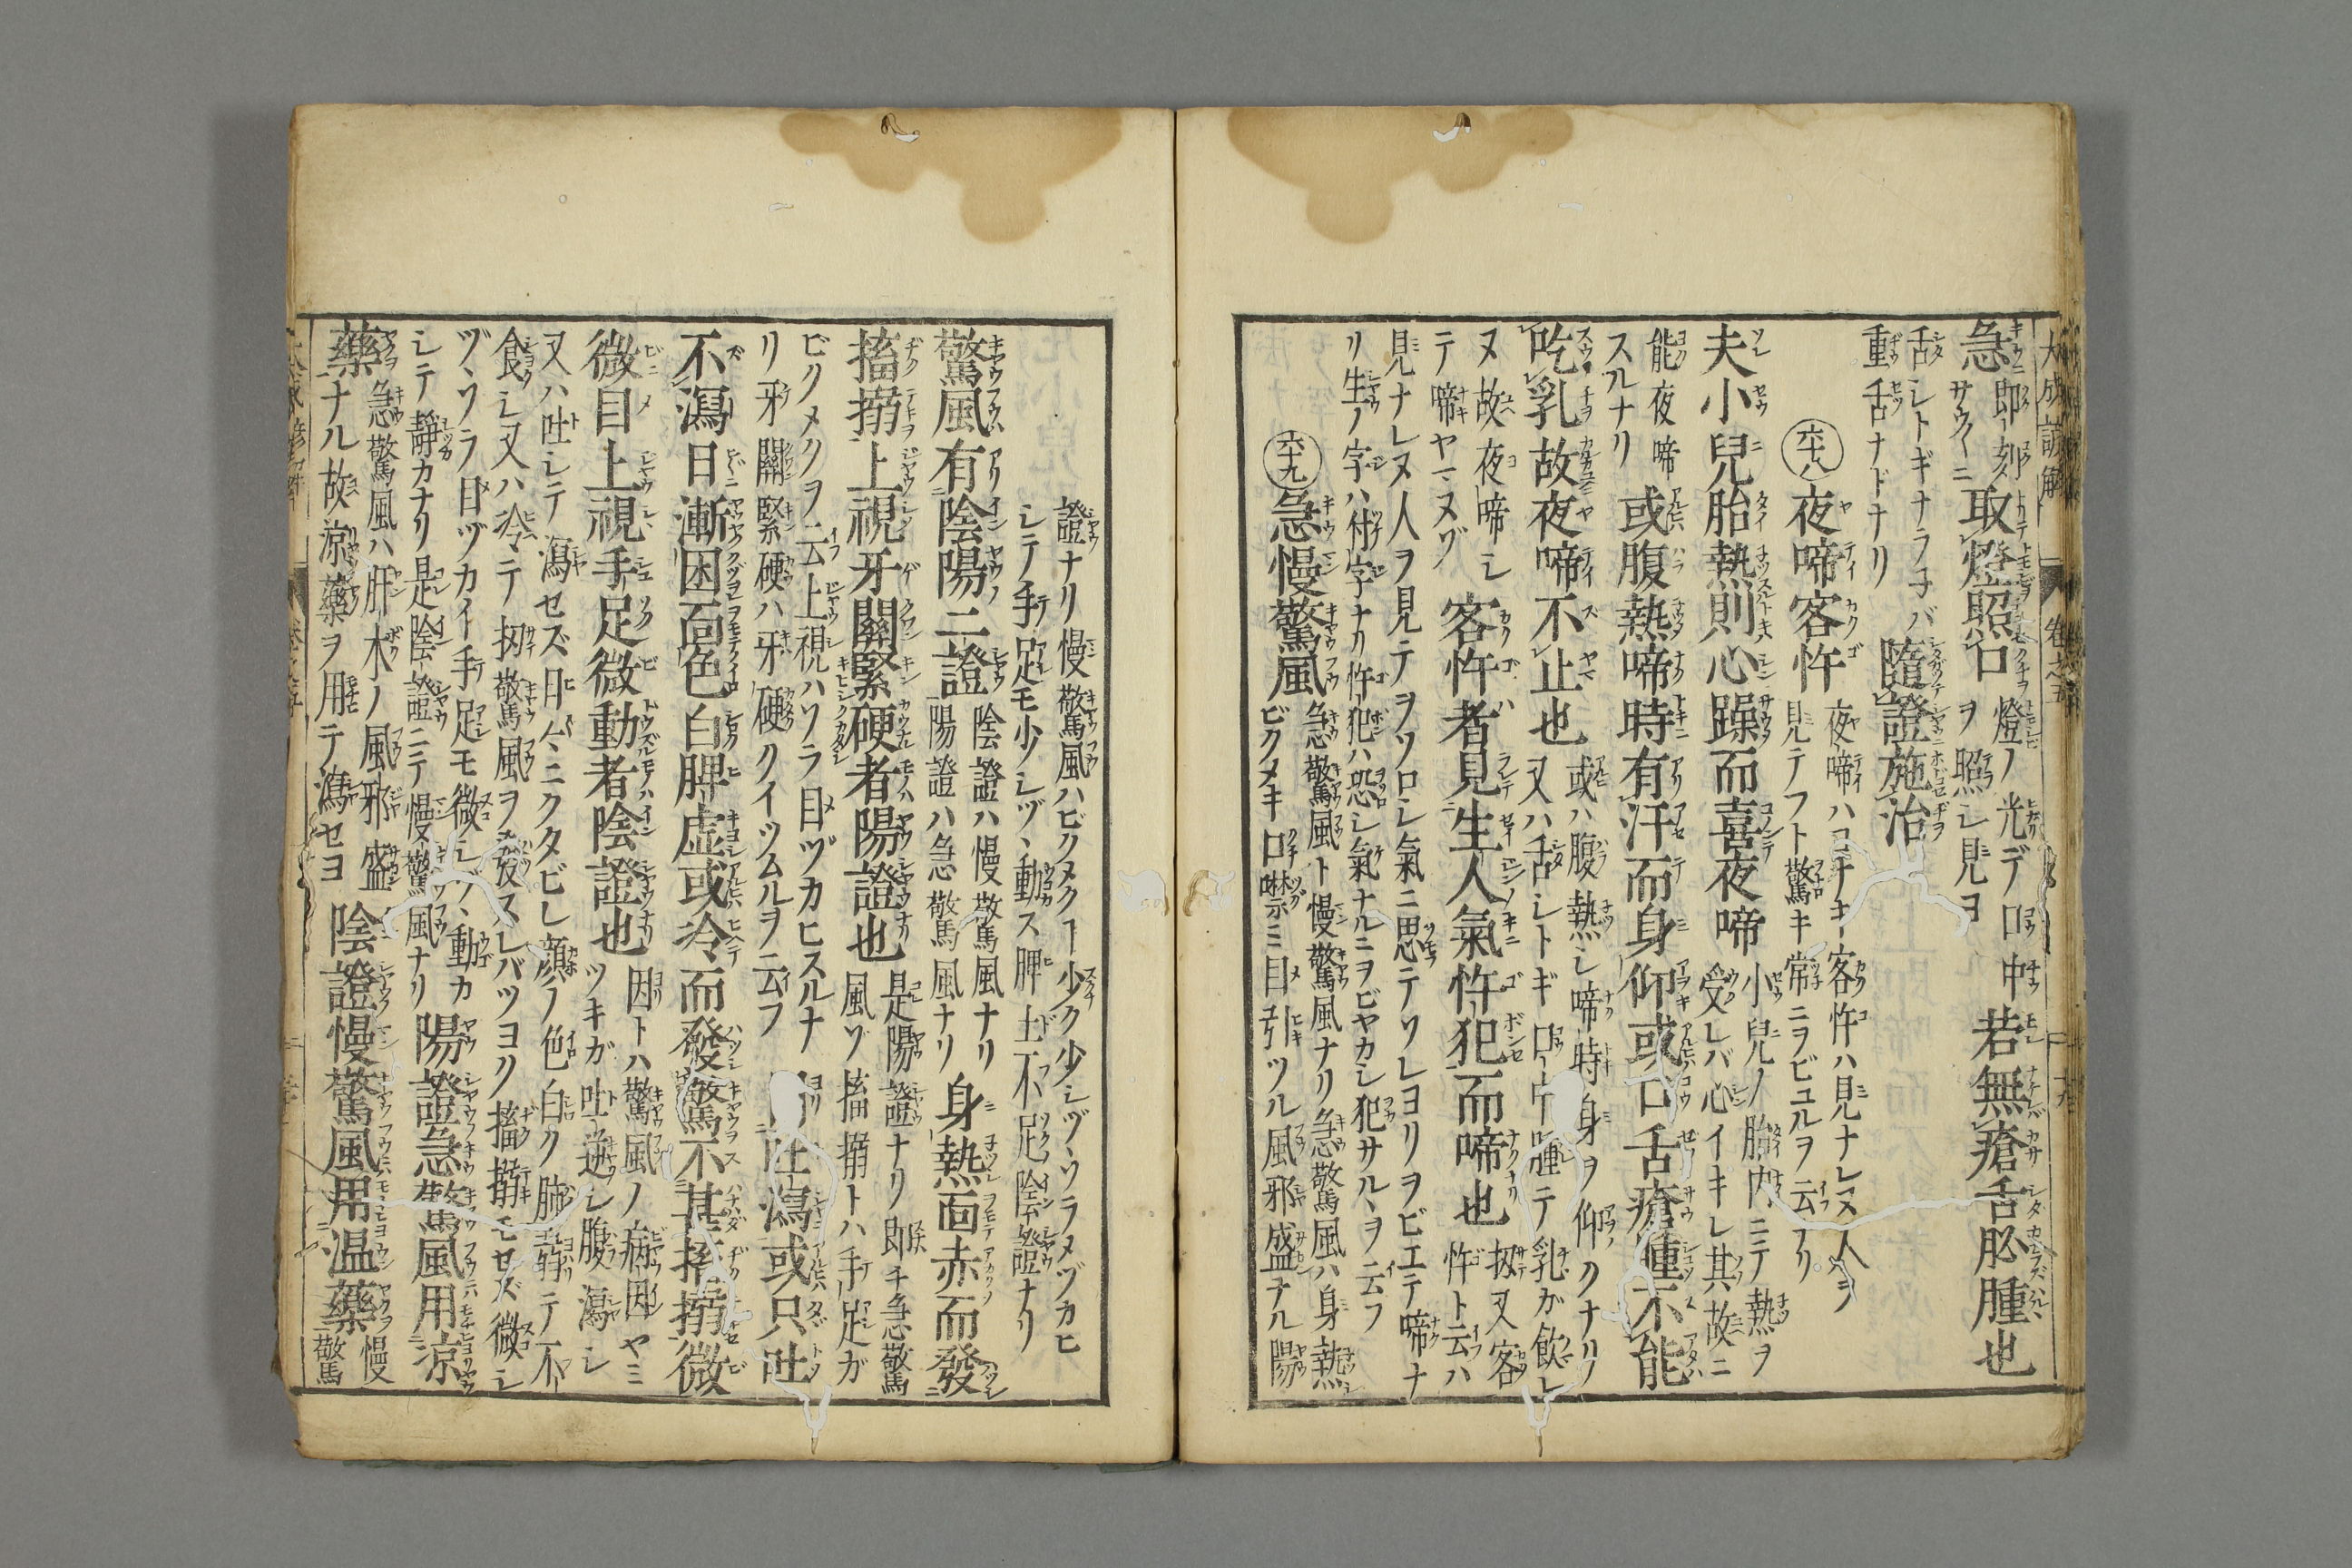 大成諺解 卷之五
急 即刻サウ〳〵ニ 取燈照口 燈ノ光デ口中ヲ照シ見ヨ 若無瘡舌必腫也
舌シトギナラ子バ重舌ナドナリ 隨證施治
六十八 夜啼客忤 夜啼ハヨナキ客忤ハ見ナレヌ人ヲ見テフト驚キ常ニヲビユルヲ云フリ
夫小兒胎熱則心躁而喜夜啼 小兒ノ胎内ニテ熱ヲ受レバ心イキレ其故ニ
能夜啼スルナリ 或腹熱啼時有汗而身仰或口舌瘡腫不能
吃乳故夜啼不止也 或ハ腹熱シ啼時身ヲ仰ノクナリ又ハ舌シトギ口中腫テ乳ガ飲レ
ヌ故夜啼シテ啼ヤマヌゾ 客忤者見生人氣忤犯而啼也 扨又客忤ト云ハ
見ナレヌ人ヲ見テヲソロシ氣ニ思テソレヨリヲビエテ啼ナ
リ生ノ字ハ付字ナリ忤犯ハ恐シ氣ナルニヲビヤカシ犯サルヽヲ云フ
六十九 急慢驚風 急驚風ト慢驚風ナリ急驚風ハ身熱ビクメキ口噤ミ目引ツル風邪盛ナル陽
證ナリ慢驚風ハビクメクー少ク少シヅヽソラメヅカヒ
シテ手足モ少シヅヽ動ス脾土不足陰證ナリ
驚風有陰陽二證 陰證ハ慢驚風ナリ陽證ハ急驚風ナリ 身熱面赤而發
搐搦上視牙關緊硬者陽證也 是陽證ナリ即チ急驚風ゾ搐搦トハ手足ガ
ビクメクヲ云上視ハソラ目ヅカヒスルナリ牙關緊硬ハ牙硬クイツムルヲ云フ 吐瀉或只吐
不瀉日漸困面色白脾虚或冷而發驚不甚搐搦微
微目上視手足微動者陰證也 因トハ驚風ノ病因ヤミツキガ吐逆シ腹瀉シ
又ハ吐シテ瀉セズ日々ニクタビレ顔ノ色白ク肺弱テ不
食シ又ハ冷テ扨驚風ヲ發スレバツヨク搐搦モセズ微シ
ヅヽソラ目ヅカイ手足モ微シヅヽ動カ
シテ靜カナリ是陰證ニテ慢驚風ナリ 陽證急驚風用涼
藥 急驚風ハ肝木ノ風邪盛ナル故涼藥ヲ用テ瀉セヨ 陰證慢驚風用温藥 慢驚